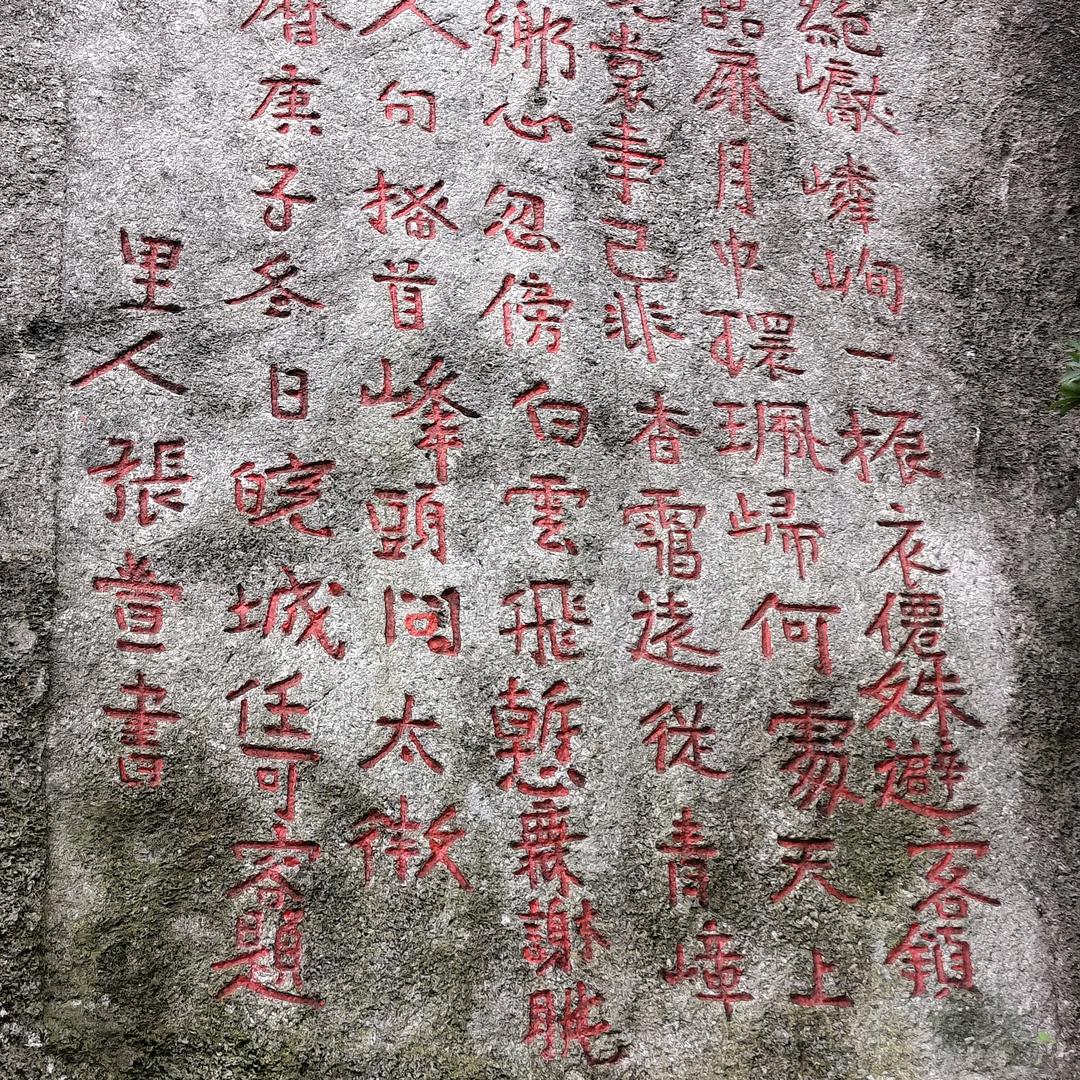 絕巘嶙峋一振衣僊姝避客鎖
扉月中環珮歸何處天上
裳事已非香靄遠從青嶂
鄉心忽傍白雲飛慙無謝朓
人句搔首峰頭問太微
曆庚子冬日皖城任可容題
里人張萱書